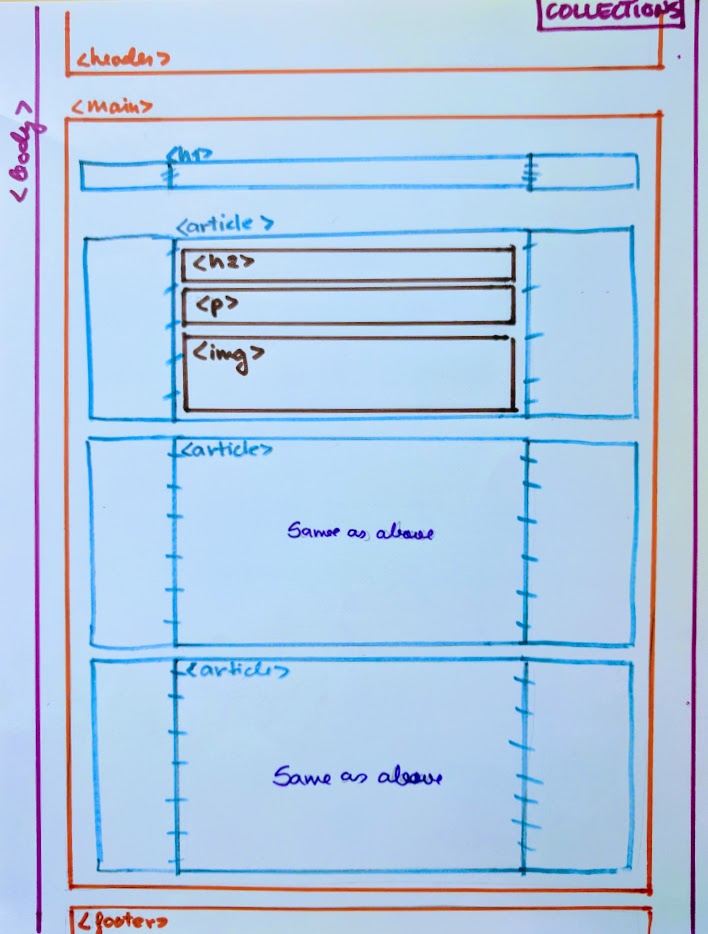 COLLECTIONS
<header>
<main>
<body>
<h1>
<article>
<h2>
<p>
<img>
<article>
Same as above
<article>
Same as above
<footer>